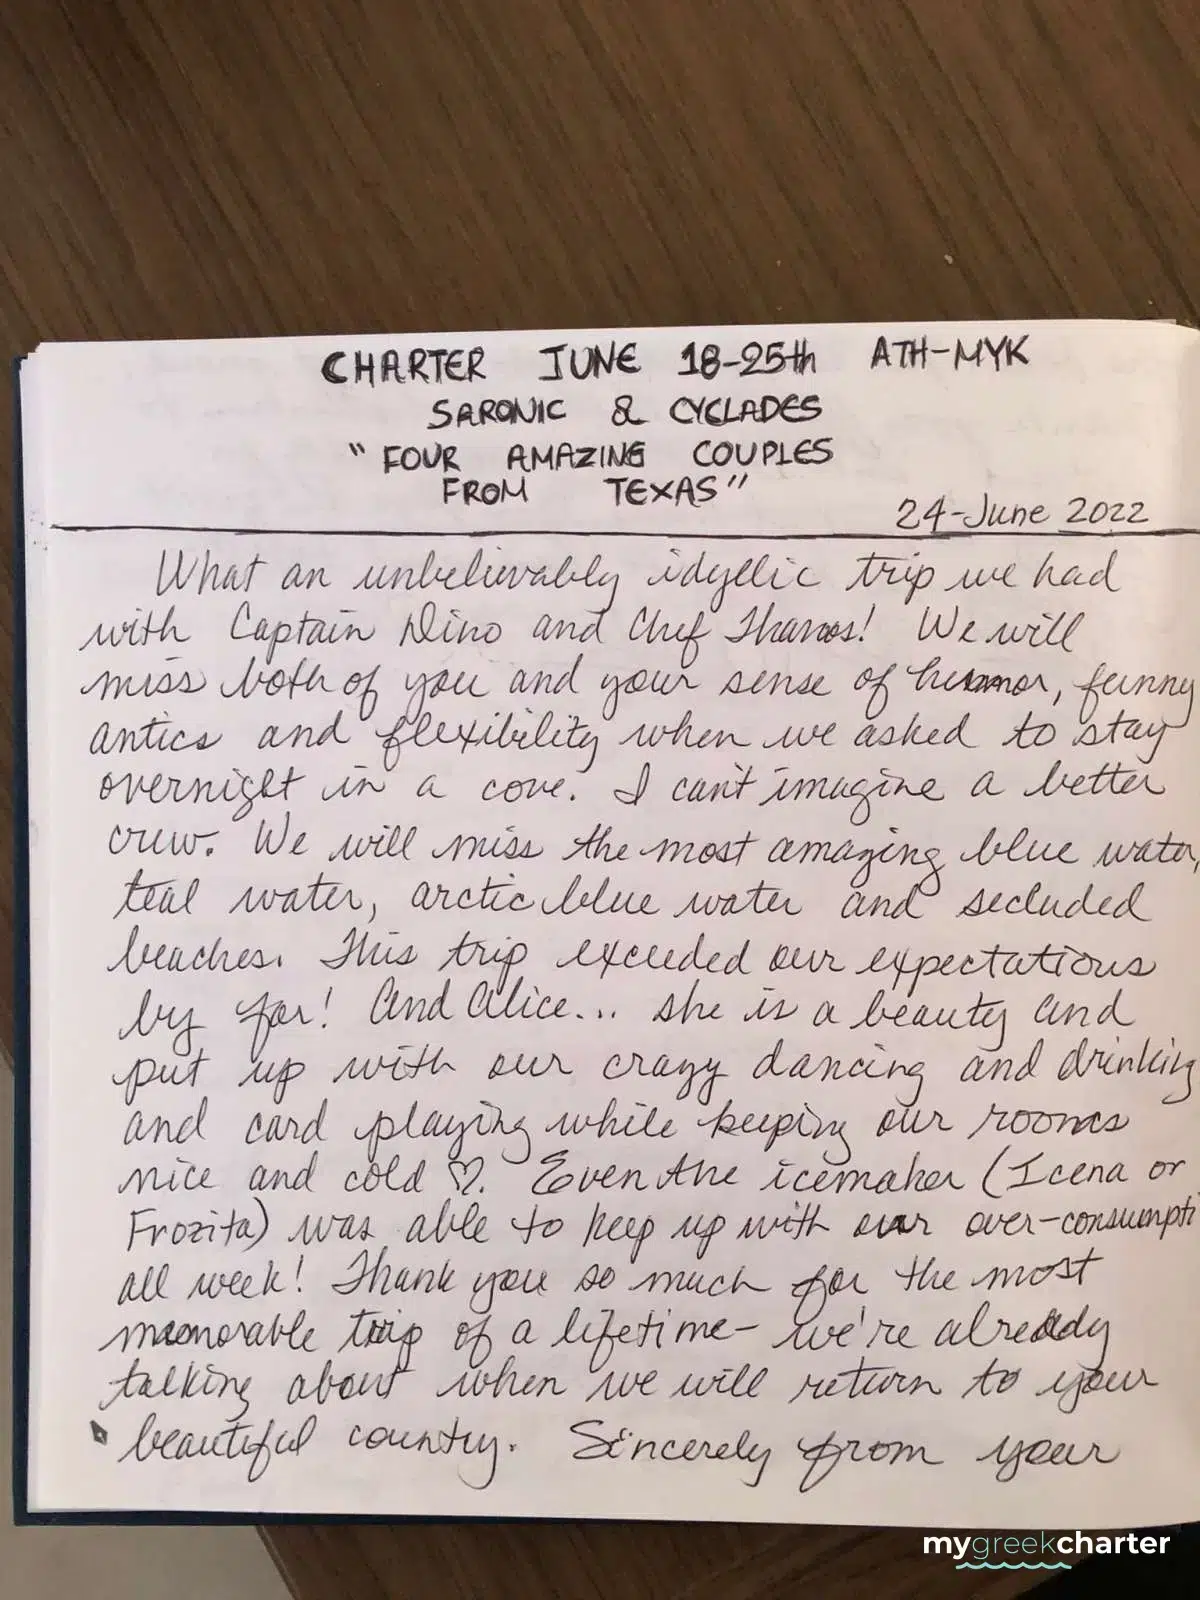 CHARTER JUNE 18-25th ATH-MYK
SARONIC & CYCLADES
"FOUR AMAZING COUPLES
FROM TEXAS"
24-June 2022
What an unbelievably idyllic trip we had
with Captain Dino and Chef Thanos! We will
miss both of you and your sense of humor, funny
antics and flexibility when we asked to stay
overnight in a cove. I can't imagine a better
crew. We will miss the most amazing blue water,
teal water, arctic blue water and secluded
beaches. This trip exceeded our expectations
by far! And Alice... she is a beauty and
put up with our crazy dancing and drinking
and card playing while keeping our rooms
nice and cold ♡. Even the icemaker (Icena or
Frozita) was able to keep up with our over-consumpti
all week! Thank you so much for the most
memorable trip of a lifetime- we're already
talking about when we will return to your
beautiful country. Sincerely from your
mygreekcharter